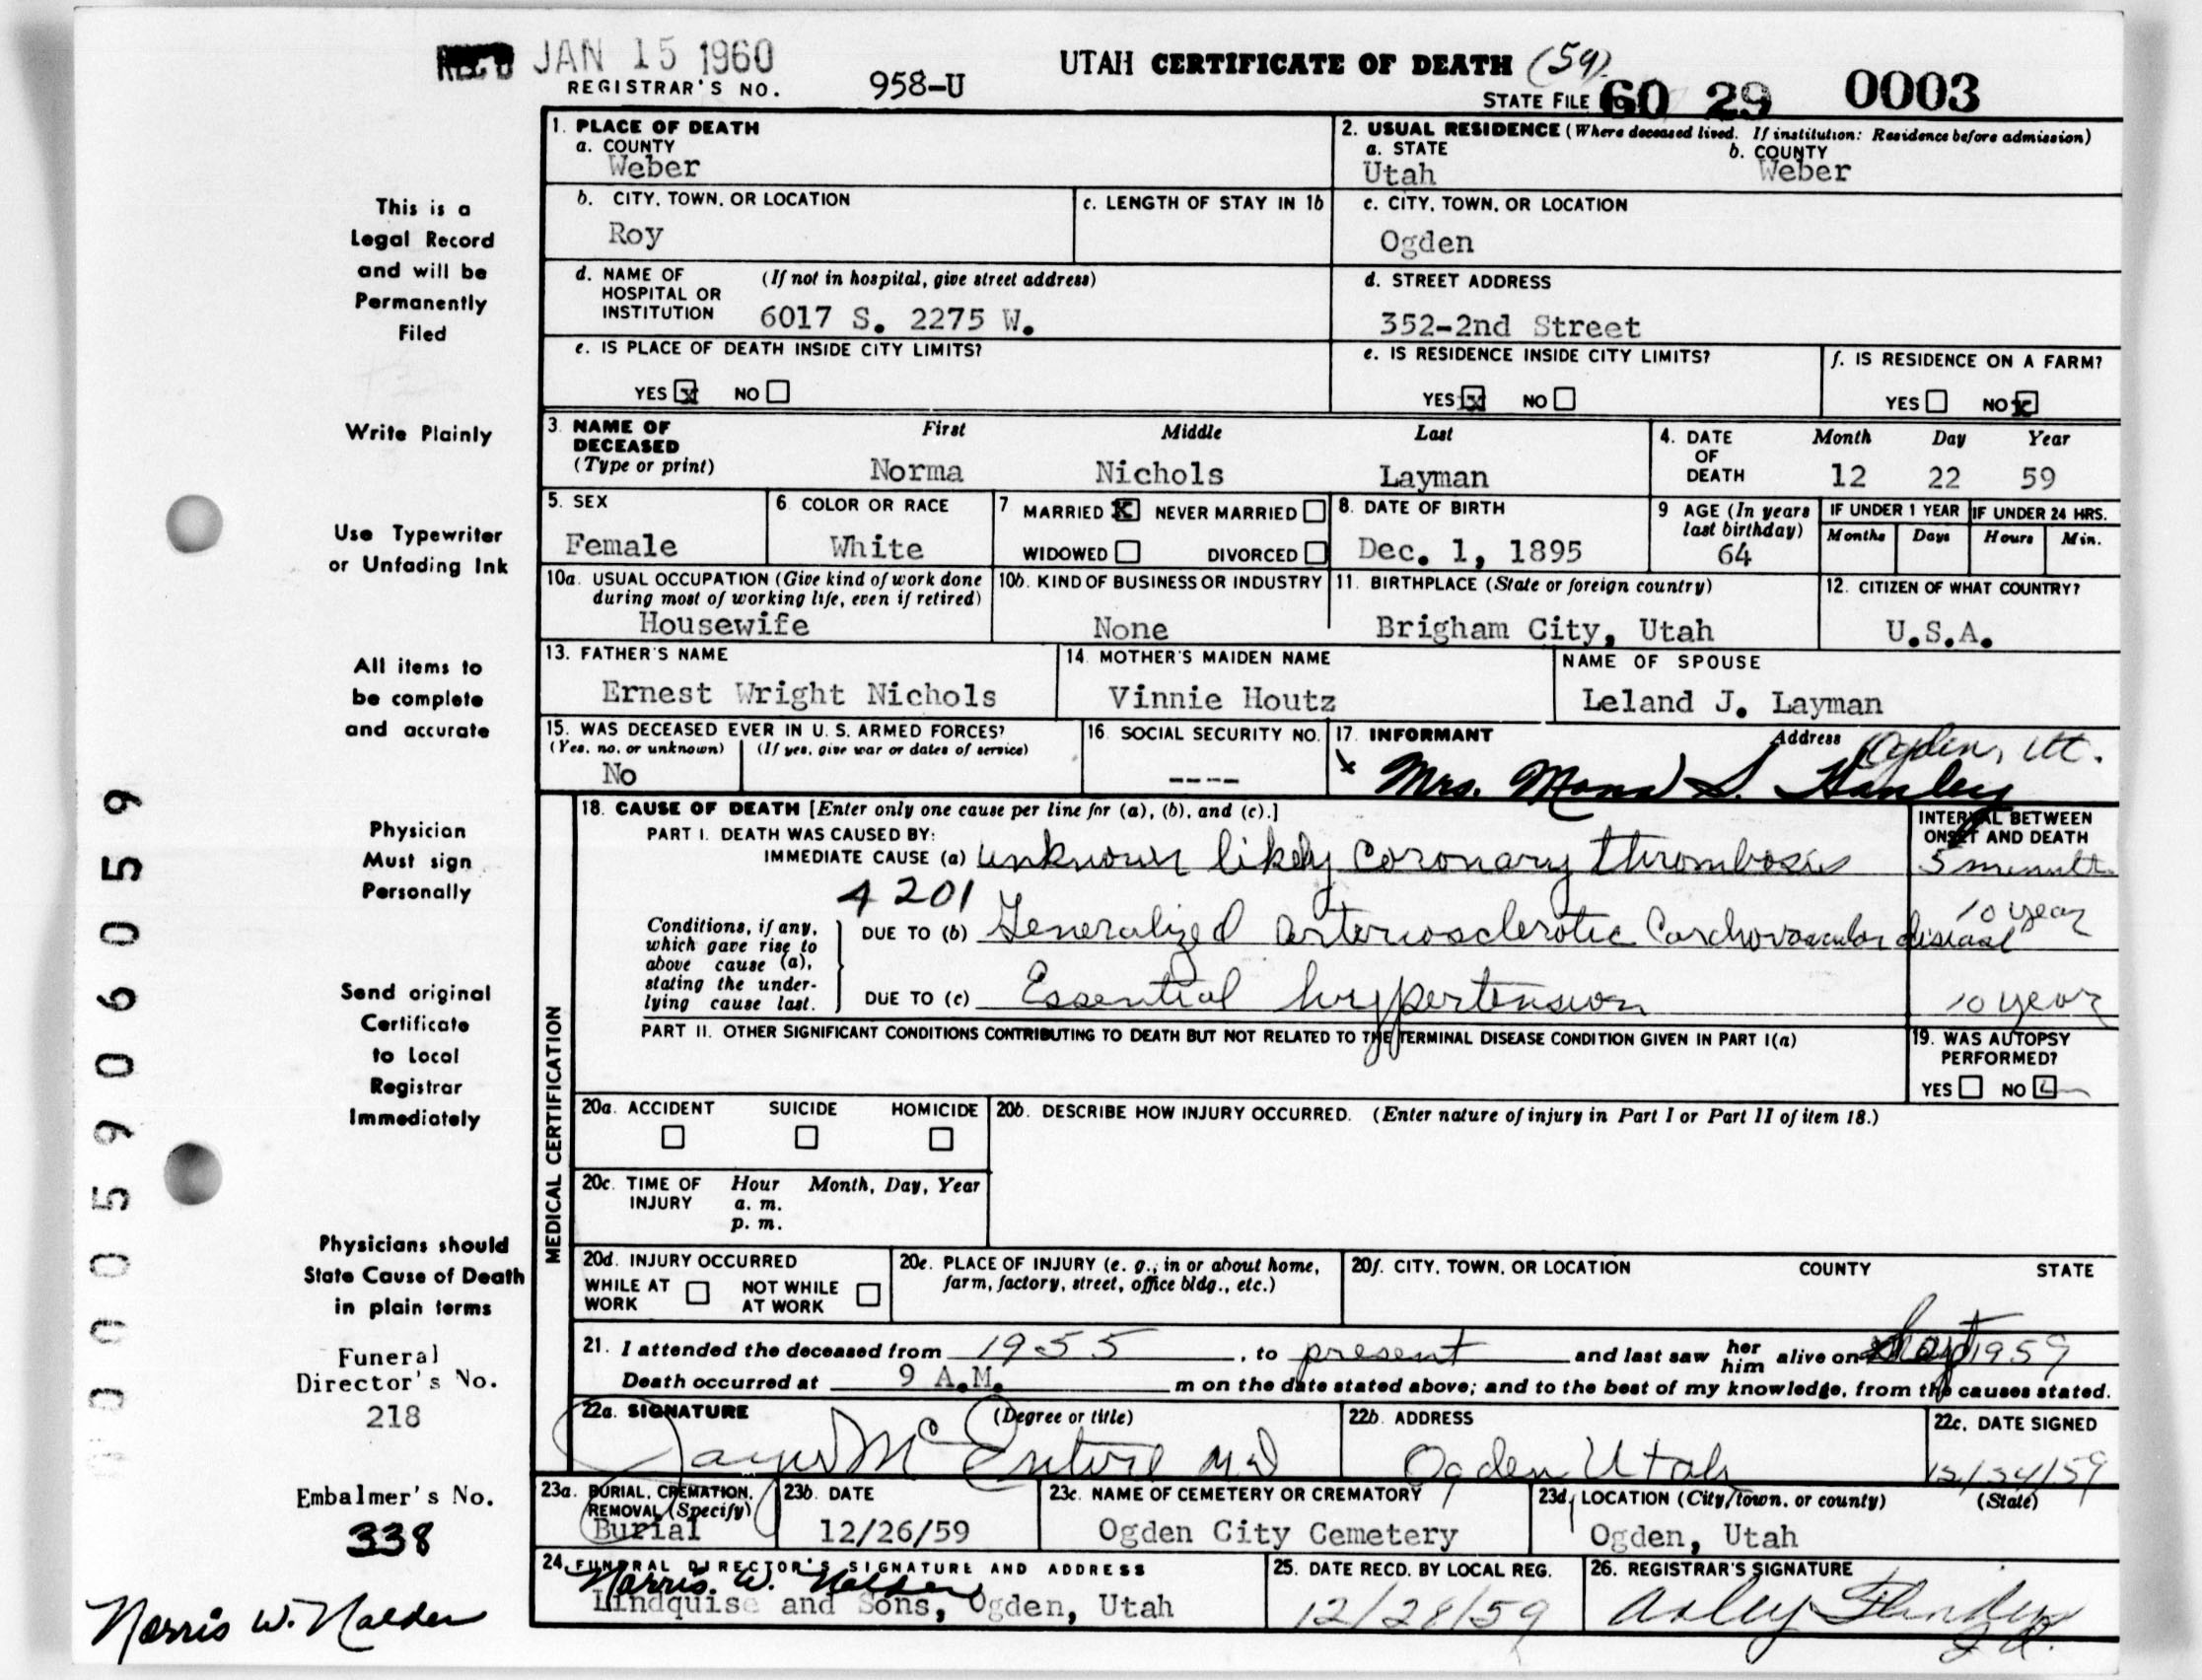 REC'D JAN 15 1960
REGISTRAR'S NO. 958-U
UTAH CERTIFICATE OF DEATH (59)
STATE FILE 60 29 0003
This is a
Legal Record
and will be
Permanently
Filed
Write Plainly
Use Typewriter
or Unfading Ink
All items to
be complete
and accurate
Physician
Must sign
Personally
Send original
Certificate
to Local
Registrar
Immediately
Physicians should
State Cause of Death
in plain terms
Funeral
Director's No.
218
Embalmer's No.
338
Norris W. Nalder
0005906059
1. PLACE OF DEATH
a. COUNTY
Weber
2. USUAL RESIDENCE (Where deceased lived. If institution: Residence before admission)
a. STATE b. COUNTY
Utah Weber
b. CITY, TOWN, OR LOCATION
Roy
c. LENGTH OF STAY IN 1b
c. CITY, TOWN, OR LOCATION
Ogden
d. NAME OF (If not in hospital, give street address)
HOSPITAL OR
INSTITUTION 6017 S. 2275 W.
d. STREET ADDRESS
352-2nd Street
e. IS PLACE OF DEATH INSIDE CITY LIMITS?
YES x NO
e. IS RESIDENCE INSIDE CITY LIMITS?
YES x NO
f. IS RESIDENCE ON A FARM?
YES NO x
3. NAME OF First Middle Last
DECEASED
(Type or print) Norma Nichols Layman
4. DATE Month Day Year
OF
DEATH 12 22 59
5. SEX
Female
6. COLOR OR RACE
White
7 MARRIED X NEVER MARRIED
WIDOWED DIVORCED
8. DATE OF BIRTH
Dec. 1, 1895
9 AGE (In years
last birthday)
64
IF UNDER 1 YEAR IF UNDER 24 HRS.
Months Days Hours Min.
10a. USUAL OCCUPATION (Give kind of work done
during most of working life, even if retired)
Housewife
10b. KIND OF BUSINESS OR INDUSTRY
None
11. BIRTHPLACE (State or foreign country)
Brigham City, Utah
12. CITIZEN OF WHAT COUNTRY?
U.S.A.
13. FATHER'S NAME
Ernest Wright Nichols
14. MOTHER'S MAIDEN NAME
Vinnie Houtz
NAME OF SPOUSE
Leland J. Layman
15. WAS DECEASED EVER IN U. S. ARMED FORCES?
(Yes, no, or unknown) (If yes, give war or dates of service)
No
16. SOCIAL SECURITY NO.
----
17. INFORMANT Address Ogden, Ut.
x Mrs. S. Hanley
MEDICAL CERTIFICATION
18. CAUSE OF DEATH [Enter only one cause per line for (a), (b), and (c).]
PART I. DEATH WAS CAUSED BY:
INTERVAL BETWEEN
ONSET AND DEATH
IMMEDIATE CAUSE (a) unknown likely coronary thrombosis 5 minute
4201
Conditions, if any,
which gave rise to
above cause (a),
stating the under-
lying cause last.
DUE TO (b) Generalized arteriosclerotic Cardiovascular disease 10 year
DUE TO (c) Essential hypertension 10 year
PART II. OTHER SIGNIFICANT CONDITIONS CONTRIBUTING TO DEATH BUT NOT RELATED TO THE TERMINAL DISEASE CONDITION GIVEN IN PART I(a)
19. WAS AUTOPSY
PERFORMED?
YES NO
20a. ACCIDENT SUICIDE HOMICIDE
20b. DESCRIBE HOW INJURY OCCURRED. (Enter nature of injury in Part I or Part II of item 18.)
20c. TIME OF Hour Month, Day, Year
INJURY a. m.
p. m.
20d. INJURY OCCURRED
WHILE AT NOT WHILE
WORK AT WORK
20e. PLACE OF INJURY (e. g., in or about home,
farm, factory, street, office bldg., etc.)
20f. CITY, TOWN, OR LOCATION COUNTY STATE
21. I attended the deceased from 1955, to present and last saw her him alive on Sept 1959
Death occurred at 9 A.M. m on the date stated above; and to the best of my knowledge, from the causes stated.
22a. SIGNATURE (Degree or title)
McEntire md
22b. ADDRESS
Ogden Utah
22c. DATE SIGNED
12/24/59
23a. BURIAL, CREMATION,
REMOVAL (Specify)
Burial
23b. DATE
12/26/59
23c. NAME OF CEMETERY OR CREMATORY
Ogden City Cemetery
23d. LOCATION (City, town, or county) (State)
Ogden, Utah
24. FUNERAL DIRECTOR'S SIGNATURE AND ADDRESS
Norris. W. Nalder
Lindquise and Sons, Ogden, Utah
25. DATE RECD. BY LOCAL REG.
12/28/59
26. REGISTRAR'S SIGNATURE